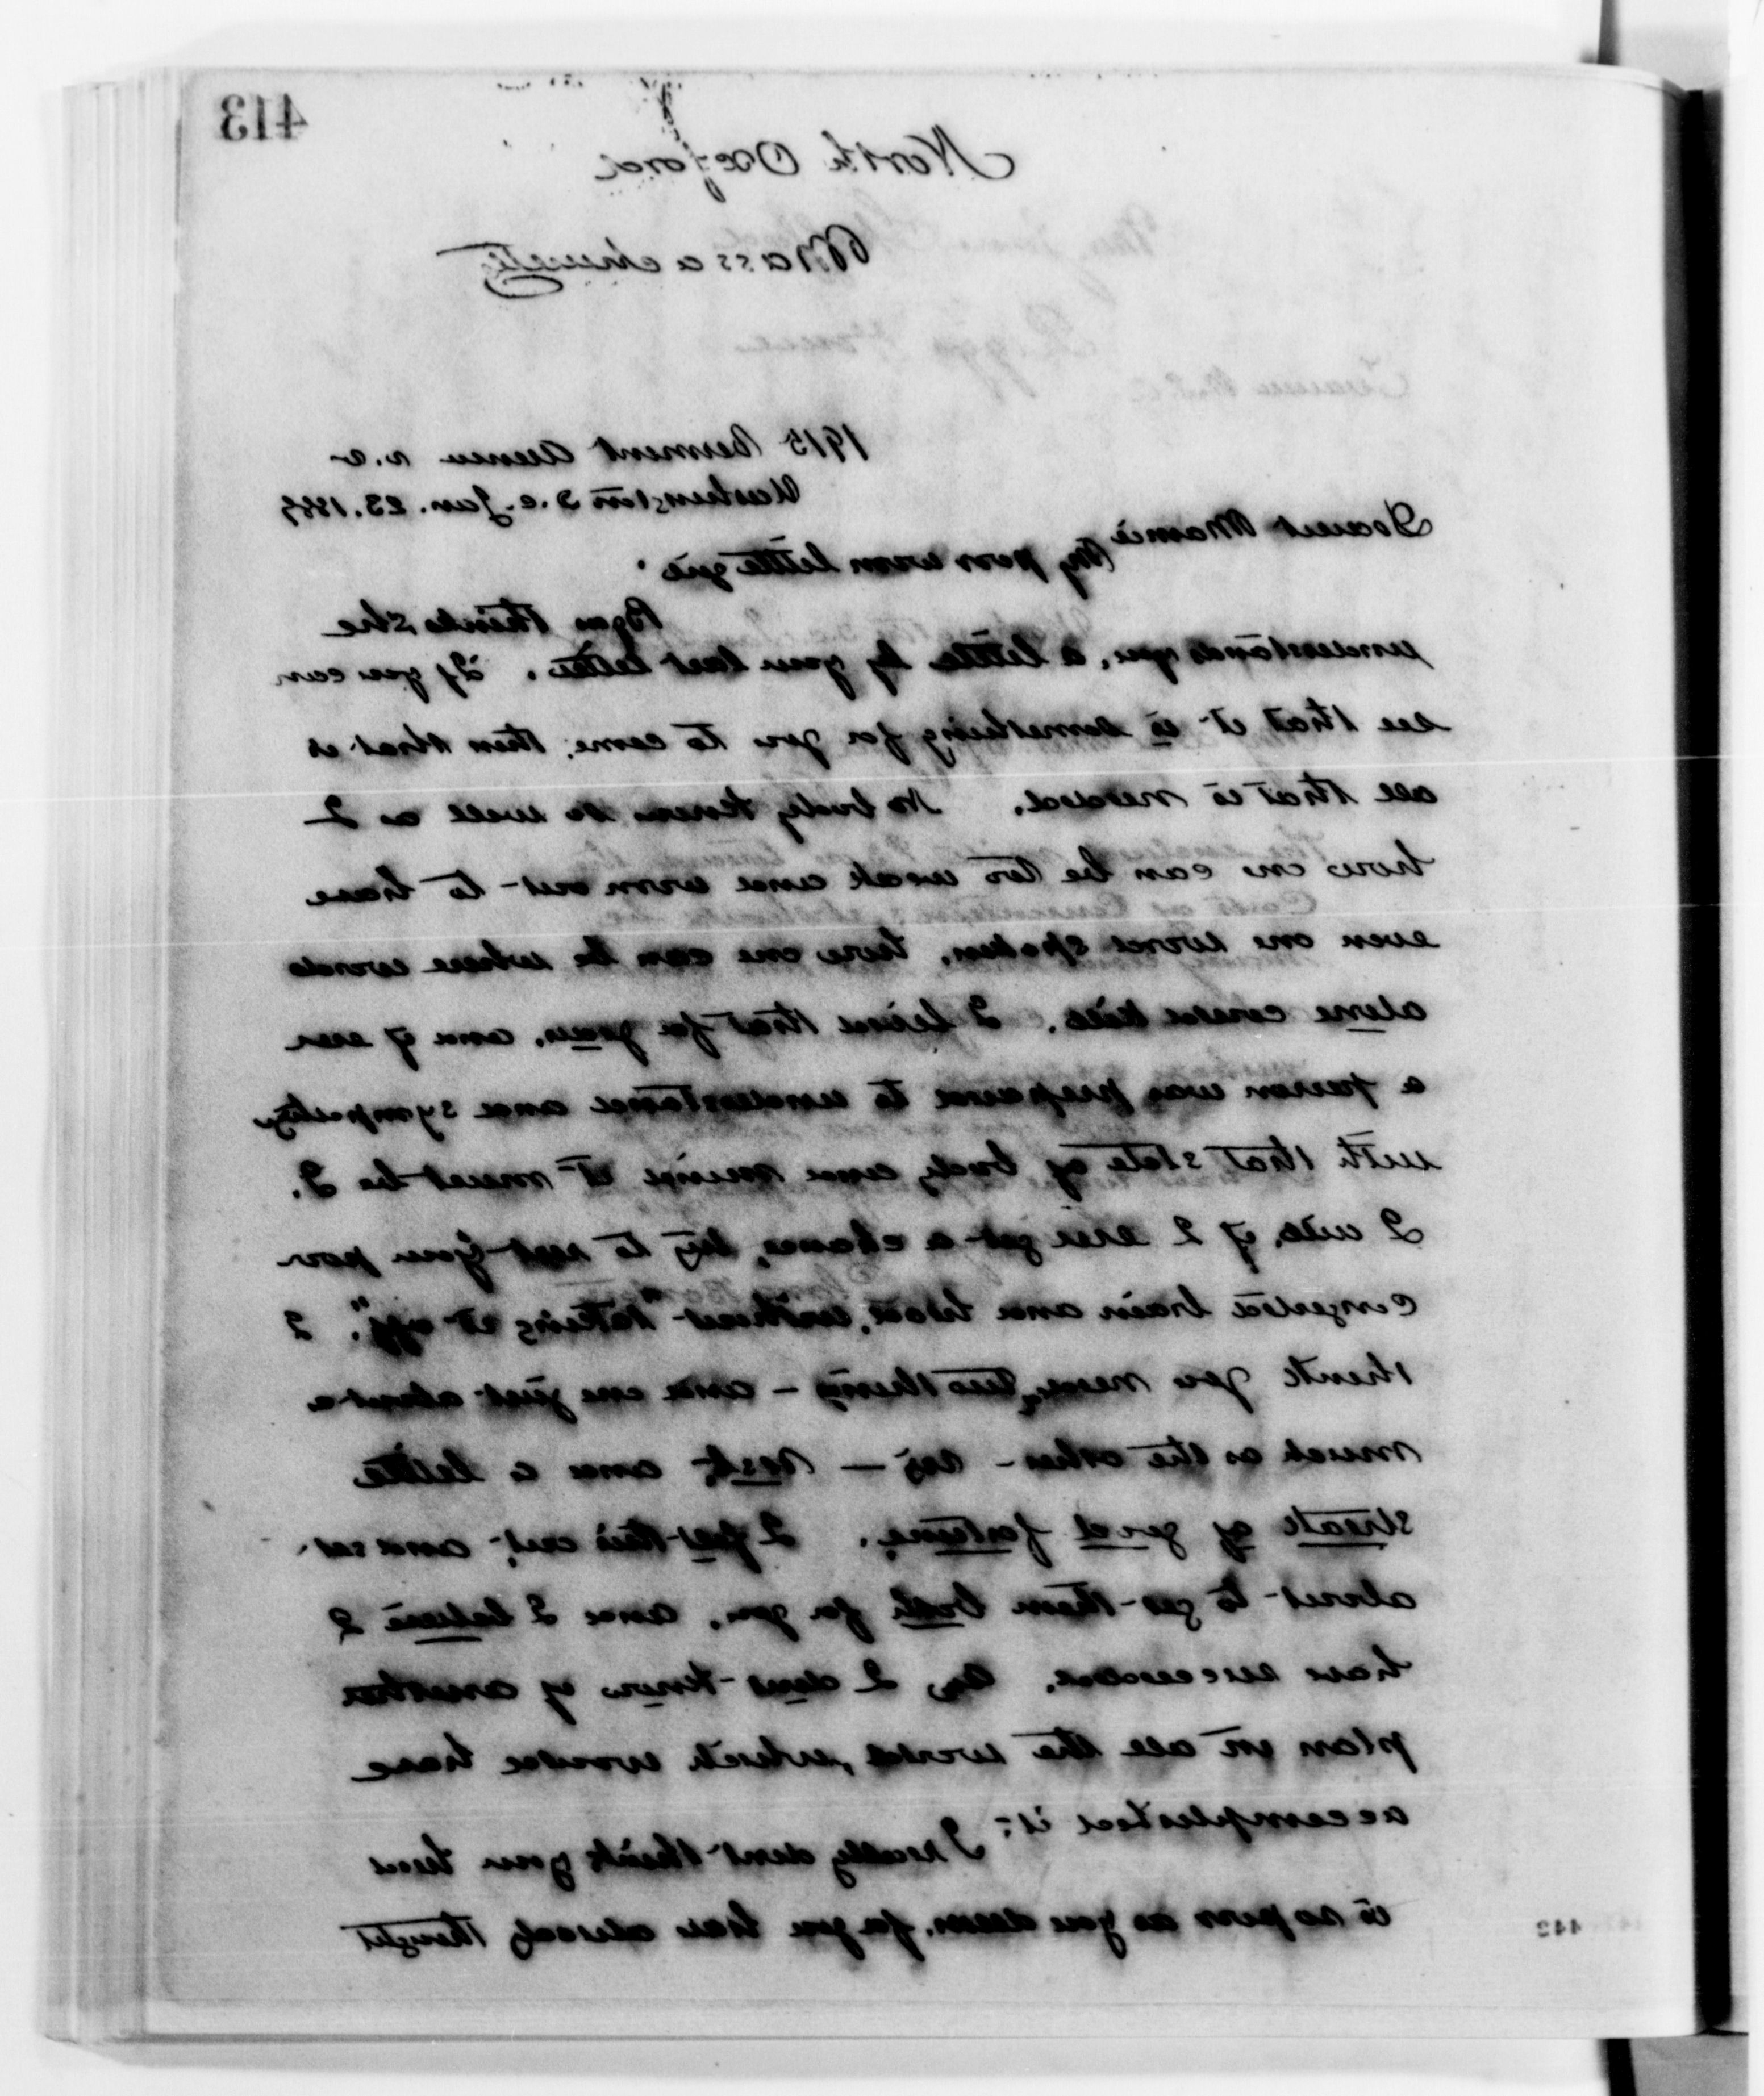 413
North Oxford
Massachusetts
1915 Vermont Avenue n.w
Washington D.C. Jan. 23. 1889
Dearest Mamie
My poor worn little girl.
think she
understands you, a little by your last letter. If you can
see that it is something for you to come, then that is
all that is needed. No body knows so well as I
how one can be too weak and worn out to have
even one word spoken, how one can be where words
alone could kill. I lived that for years, and if ever
a person was prepared to understand and sympathize
with that state of body and mind it must be I.
I will, if I ever get a chance, try to rest your poor
congested brain and head, without "taking it off". I
think you need two things – and one just about as
much as the other – – Rest, and a little
streak of good fortune. I got this out, and set
about to get them both for you, and I believe I
have succeeded. I don't know of another
plan in all the world, which would have
accomplished it;
I really don't think your head
is so poor as you deem, for you have already thought
442